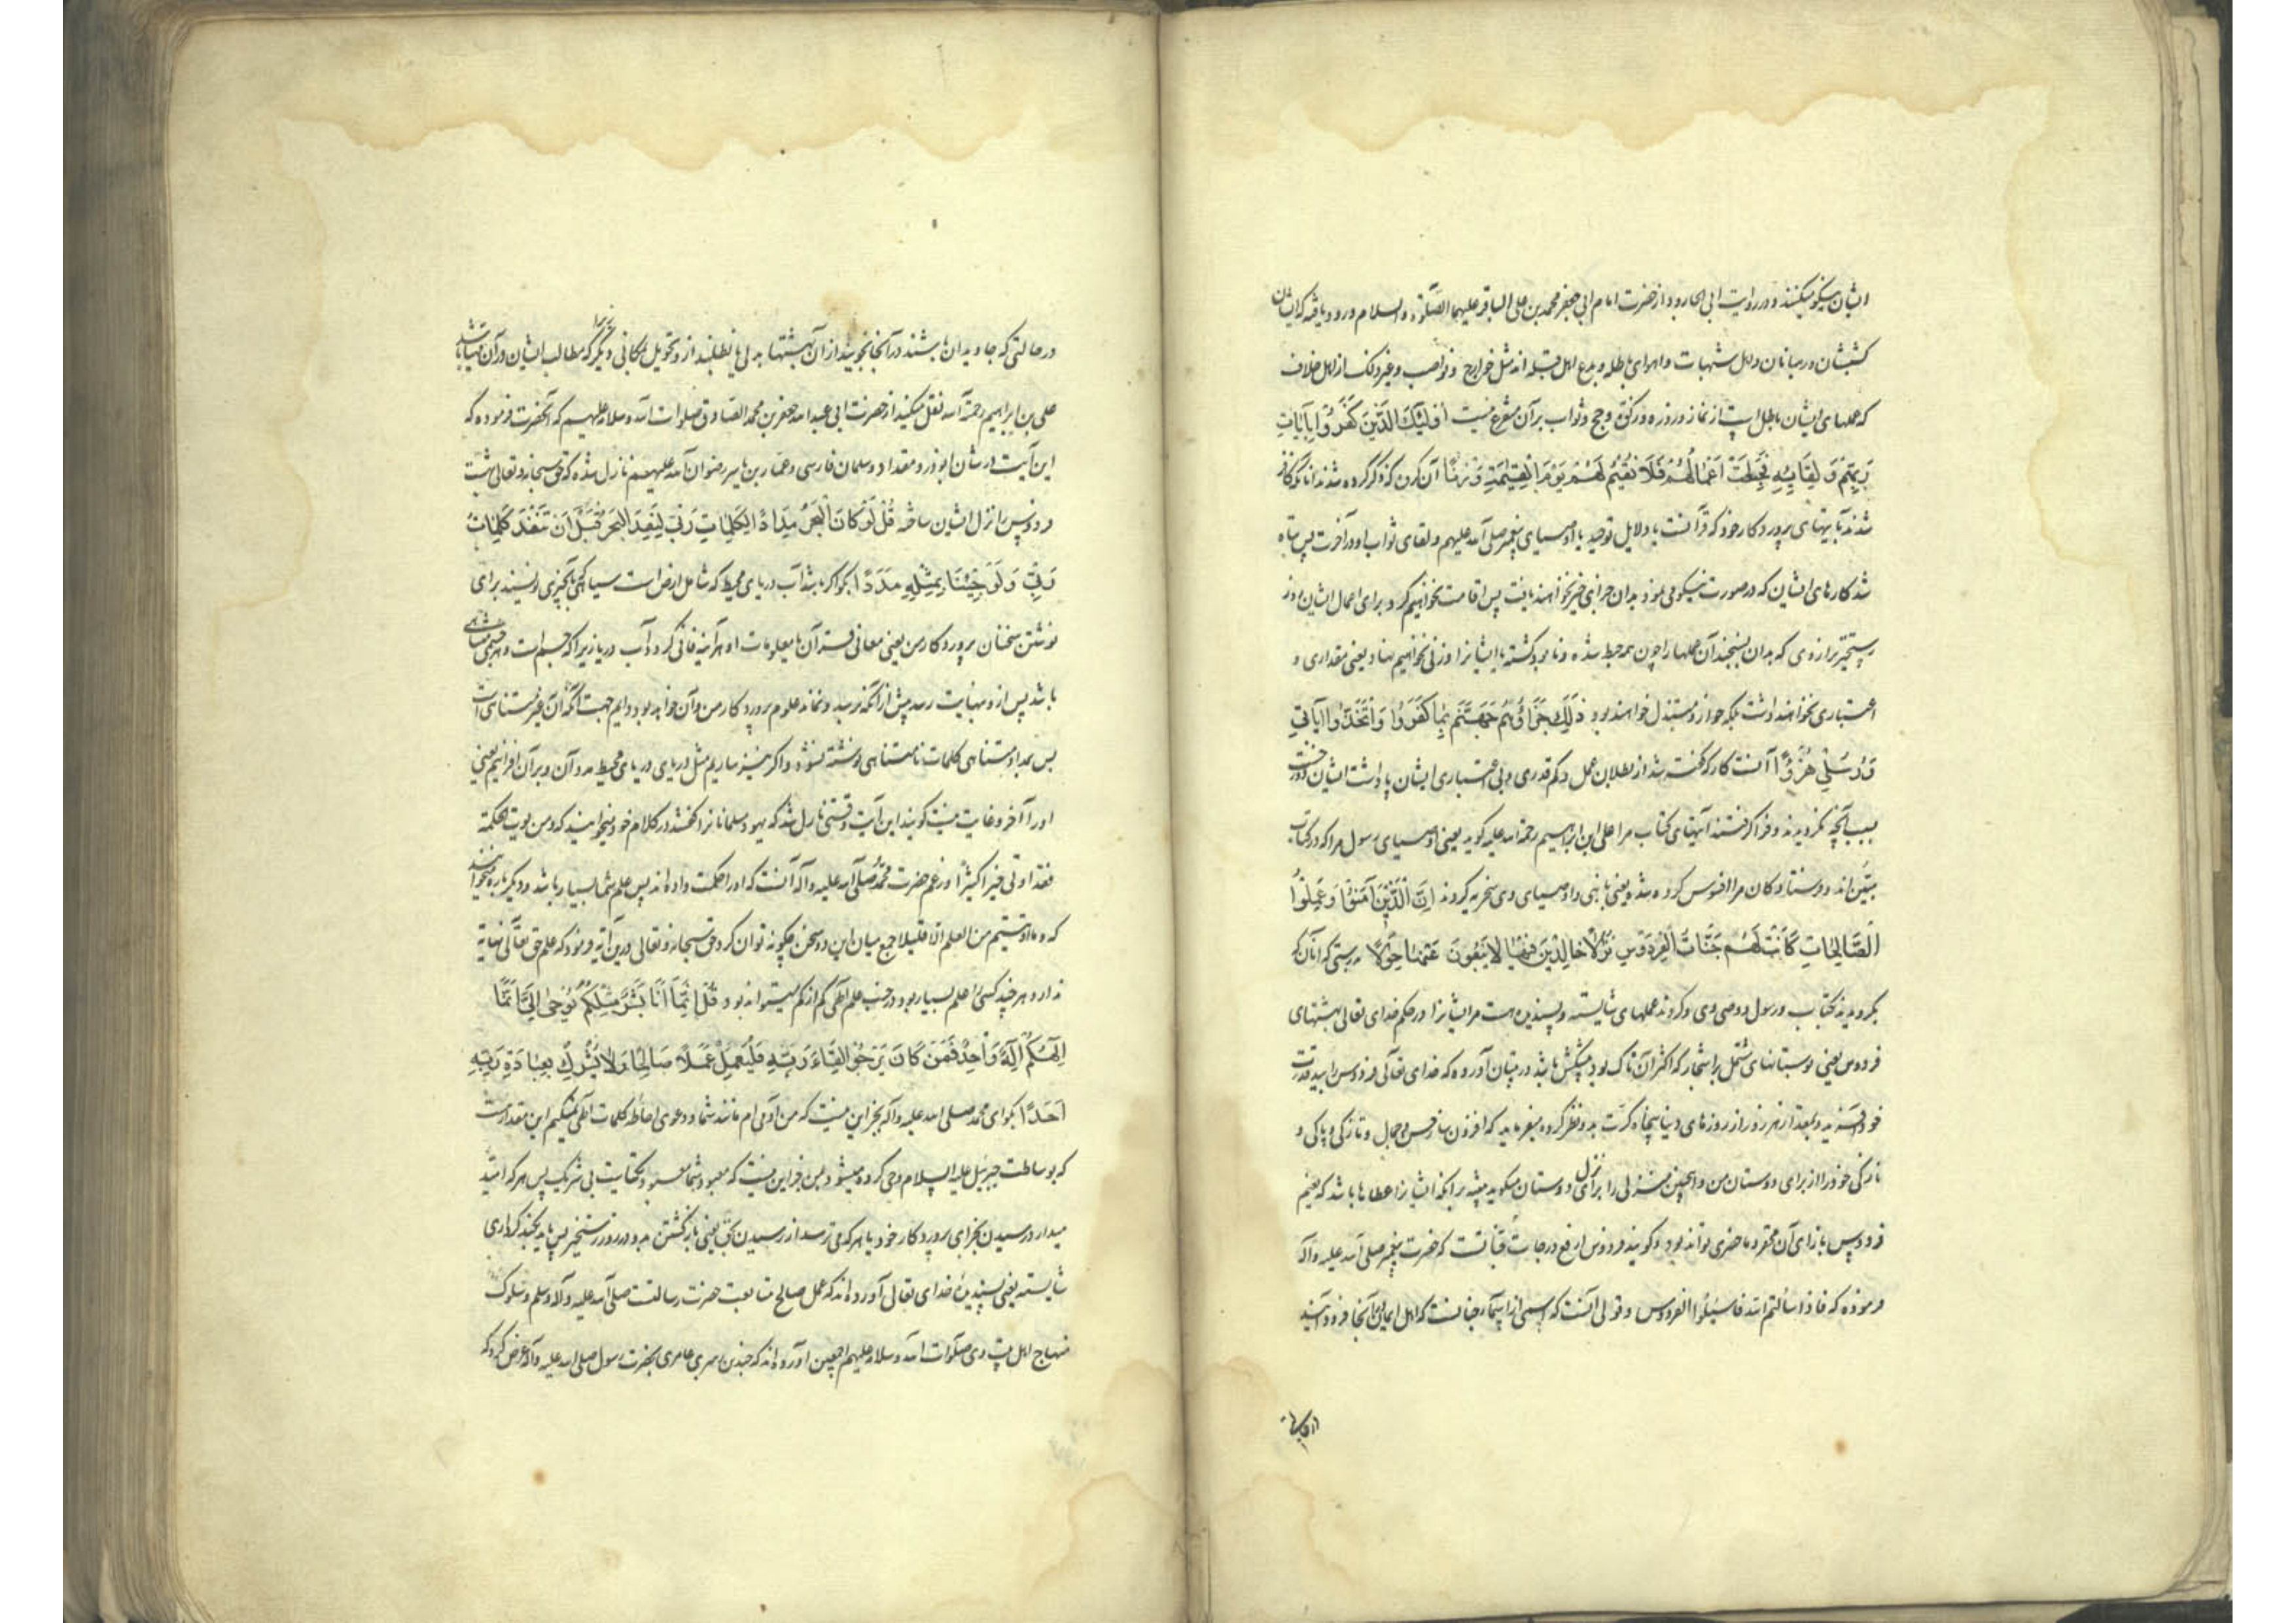 ایشان نیکو میکنند و در روایت ابی الجارود از حضرت امام ابی جعفر محمد بن علی الباقر علیهما الصلوة والسلام ورود یافته که ایشان
کشیشان و رهبانان و اهل شبهات و اهوای باطله و بدع اهل قبله اند مثل خوارج و نواصب و غیر ذلک از اهل خلاف
که عملهای ایشان باطل است از نماز و روزه و زکوة و حج و ثواب بر آن متفرع نیست أُولَئِكَ الَّذِينَ كَفَرُوا بِآيَاتِ
رَبِّهِمْ وَلِقَائِهِ فَحَبِطَتْ أَعْمَالُهُمْ فَلَا نُقِيمُ لَهُمْ يَوْمَ الْقِيٰمَةِ وَزْنًا آن کرن که ذکر کرده شدند آنانند که کافر
شدند بآیتهای پروردکار خود که قرآنست یا دلایل توحید یا اوصیای پیغمبر صلی الله علیهم و لقای ثواب او در آخرت پس تباه
شد کارهای ایشان که در صورت نیکو می نمود بدان جزای خیر نخواهند یافت پس اقامت نخواهیم کرد برای اعمال ایشان روز
رستخیز ترازوی که بدان بسنجند آن عملها را چون همه حبط شده و نابود کشته یا ایشانرا وزنی نخواهیم نهاد یعنی مقداری و
اعتباری نخواهند داشت بلکه خوار و مبتذل خواهند بود ذَلِكَ جَزَاؤُهُمْ جَهَنَّمُ بِمَا كَفَرُوا وَاتَّخَذُوا آيَاتِي
وَرُسُلِي هُزُوًا آنست کار که گفته شد از بطلان عمل و کم قدری و بی اعتباری ایشان پاداشت ایشان دوزخست
بسبب آنچه نکرویدند و فرا کرفتند آیتهای کتاب مرا علی ابن ابراهیم رحمة الله علیه کوید یعنی اوصیای رسول مرا که در کتاب
مبین اند و فرستادکان مرا افسوس کرده شده یعنی با نبی و اوصیای وی سخریه کردند إِنَّ الَّذِينَ آمَنُوا وَعَمِلُوا
الصَّالِحَاتِ كَانَتْ لَهُمْ جَنَّاتُ الْفِرْدَوْسِ نُزُلًا خَالِدِينَ فِيهَا لَا يَبْغُونَ عَنْهَا حِوَلًا بدرستی که آنان که
بکرویدند بکتاب و رسول و وصی وی و کردند عملهای شایسته و پسندیده هست مر ایشانرا در حکم خدای تعالی بهشتهای
فردوس یعنی بوستانهای مشتمل بر اشجار که اکثر آن تاک بود پیشکش باشد در تبیان آورده که خدای تعالی فردوس را بید قدرت
خود آفریده و بمقدار هر روز از روزهای دنیا پنجاه کرت بدو نظر کرده میفرماید که افزون ساز حسن و جمال و تازکی و پاکی و
نازکی خود را از برای دوستان من و همچنین منزلی را برای نزل دوستان میکوید بیشتر برانکه ایشانرا عطاها باشد که نعیم
فردوس بازای آن محقر و ما حضری تواند بود و کویند فردوس ارفع درجات جنانست که حضرت پیغمبر صلی الله علیه وآله
فرموده که فاذا سألتم الله فاسئلوا الفردوس و قولی آنست که اسمی از اسماء جنانست که اهل ایمان آنجا فرود آیند
در حالتی که جاویدان باشند در آنجا نجویند از آن بهشتها بدلی یا نطلبند از و تحویل بمکانی دیگر که مطالب ایشان در آن مهیا باشد
علی بن ابراهیم رحمة الله نقل میکند از حضرت ابی عبد الله جعفر بن محمد الصادق صلوات الله و سلامه علیهم که آنحضرت فرموده که
این آیت در شان ابوذر و مقداد و سلمان فارسی و عمار بن یاسر رضوان الله علیهم نازل شده که حق سبحانه و تعالی بهشت
فردوس را نزل ایشان ساخته قُلْ لَوْ كَانَ الْبَحْرُ مِدَادًا لِكَلِمَاتِ رَبِّي لَنَفِدَ الْبَحْرُ قَبْلَ أَنْ تَنْفَدَ كَلِمَاتُ
رَبِّي وَلَوْ جِئْنَا بِمِثْلِهِ مَدَدًا بکو اکر باشد آب دریای محیط که شامل ارض است سیاهی یا چیزی نویسند برای
نوشتن سخنان پروردکار من یعنی معانی قرآن یا معلومات او هر آینه فانی کردد آب دریا زیرا که جسم است و هر جسمی متناهی
باشد پس از و نهایت رسد پیش از آنکه نرسد و نماند علوم پروردکار من و آن خواهد بود دایم جهت آنکه آن غیر متناهی است
پس بمداد متناهی کلمات نامتناهی نوشته نشود و اکر نیز بیاریم مثل دریای دریای محیط مدد آن و بر آن افزاییم یعنی
او را آخر و غایت نیست کویند این آیت وقتی نازل شد که یهود مسلمانانرا کفتند در کلام خود میخوانید که و من یؤت الحکمة
فقد اوتی خیرا کثیرا و زعم حضرت محمد صلی الله علیه وآله آنست که او را حکمت داده اند پس علم شما بسیار باشد و دیکر باره میخوانند
که و ما اوتیتم من العلم الا قلیلا جمع میان این دو سخن چکونه توان کرد حق سبحانه و تعالی درین آیه فرمود که علم حق تعالی نهایة
ندارد هر چند کسی را علم بسیار بود در جنب علم الهی کم از کم میتواند بود قُلْ إِنَّمَا أَنَا بَشَرٌ مِثْلُكُمْ يُوحَى إِلَيَّ أَنَّمَا
إِلَهُكُمْ إِلَهٌ وَاحِدٌ فَمَنْ كَانَ يَرْجُو لِقَاءَ رَبِّهِ فَلْيَعْمَلْ عَمَلًا صَالِحًا وَلَا يُشْرِكْ بِعِبَادَةِ رَبِّهِ
أَحَدًا بکو ای محمد صلی الله علیه وآله بجز این نیست که من آدمی ام مانند شما و دعوی احاطه کلمات الهی نمیکنم این مقدار هست
که بوساطت جبرئیل علیه السلام وحی کرده میشود بمن جز این نیست که معبود شما معبود یکتایست بی شریک پس هر که امید
میدارد رسیدن بجزای پروردکار خود یا هر که می ترسد از رسیدن بحق یعنی بازکشتن بدو در روز رستخیز پس باید بکند کرداری
شایسته یعنی پسندیدۀ خدای تعالی آورده اند که عمل صالح متابعت حضرت رسالتست صلی الله علیه و آله وسلم و سلوک
منهاج اهل بیت وی صلوات الله و سلامه علیهم اجمعین آورده اند که جندب بن عامری بحضرت رسول صلی الله علیه وآله عرض کرد که